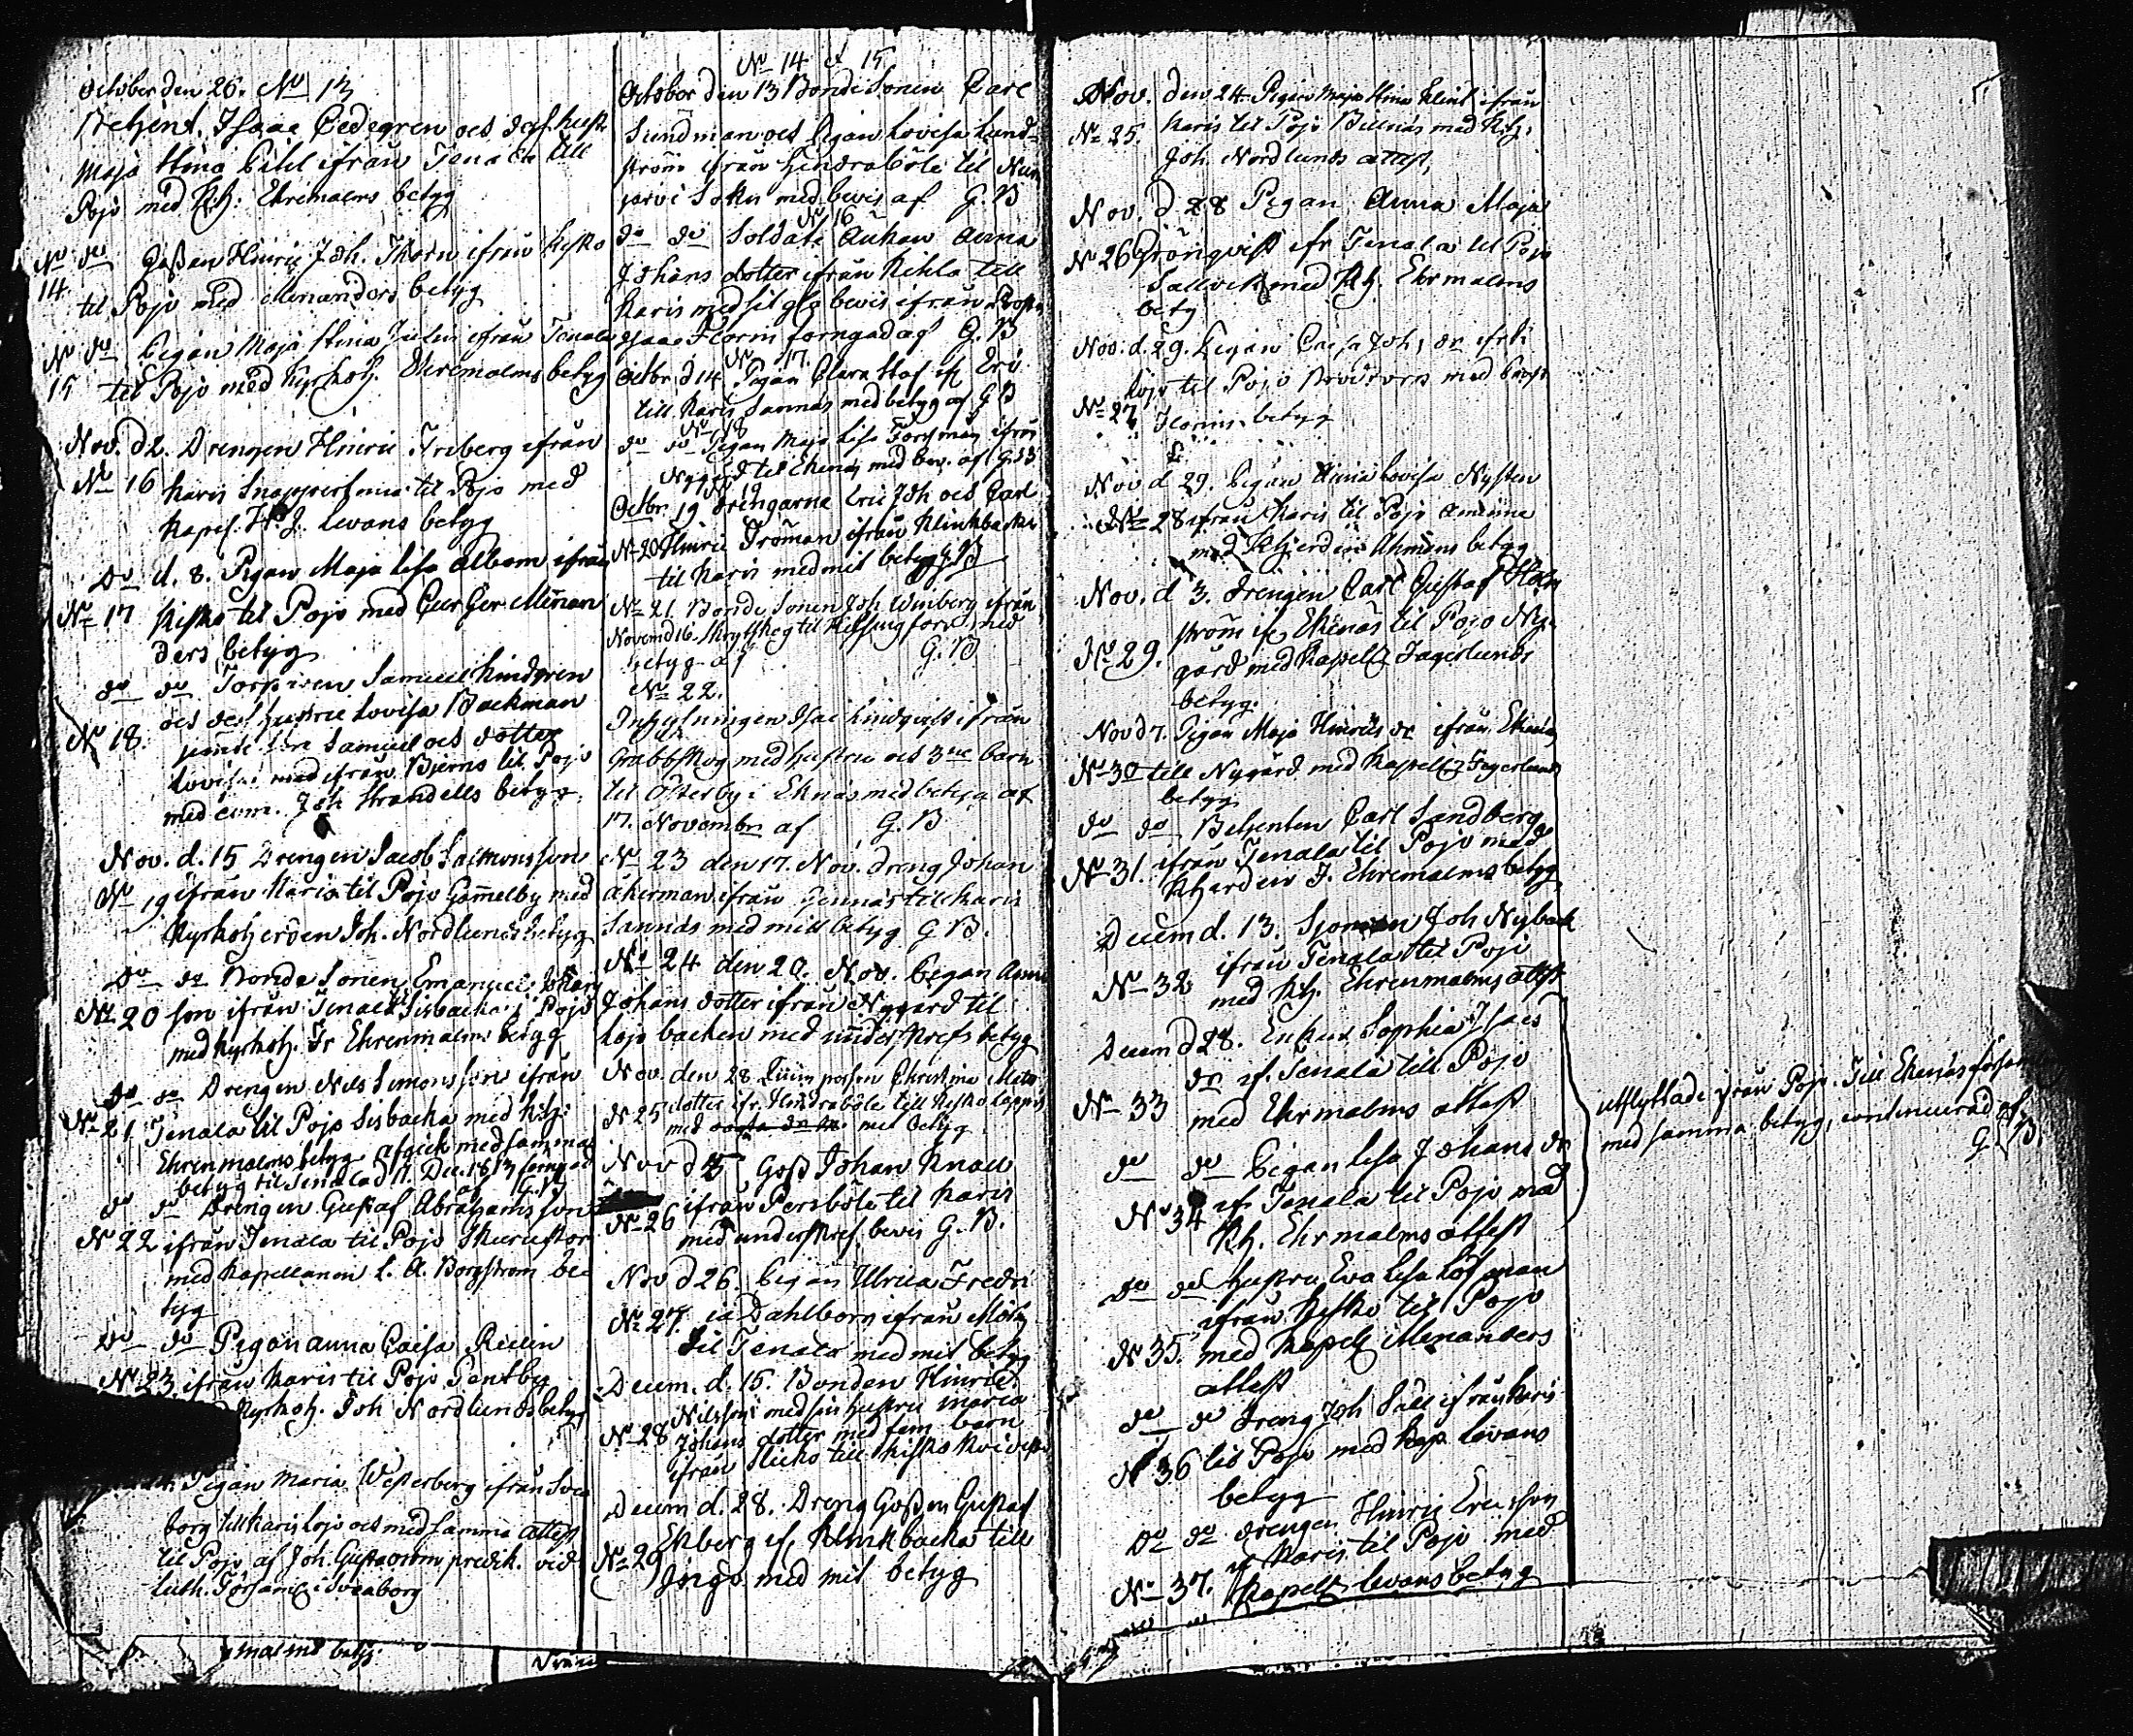 October den 26. No 13
Betjent. Isaac Cedegren och des hust
Maja Stina ifrån Tenala till
Pojo med Kh. Ehremalms betyg
No do Gossen Hinric Joh. Thorn ifrån Kisko
14 til Pojo med Menanders betyg
No do Pigan Maja Stina Julin ifrån Tenala
15 til Pojo med Kyrkoh. Ehremalms betyg
Nov. d 2. Drengen Hinric Friberg ifrån
No 16 Karis til Pojo med
Kapel. H. J. Levans betyg
Do d. 8. Pigan Maja Lisa Albom ifrån
No 17 Kisko til Pojo med Menan
ders betyg
do do Samuel Lindgren
No 18. och des hustru Lovisa Backman
Samuel och dotter
Lovisa med ifrån Bjerno til Pojo
med Joh Strandells betyg
Nov. d. 15 Drengen Jacob Salmonsson
No 19 ifrån Karis til Pojo Gammelby med
Kyrkoherden Joh. Nordlunds betyg
Do do Bonde Sonen Emanuel Johans
No 20 son ifrån Tenala Sisbacka i Pojo
med Kyrkoh. Fr Ehrenmalms betyg
Do do Drengen Nils Simonsson ifrån
No 21 Tenala til Pojo Sisbacka med Kh:
Ehrenmalms betyg afgick med samma
betyg til Tenala d 11. Dec. 1813
do do Drengen Gustaf Abrahamsson
No 22 ifrån Tenala til Pojo Skuru
med Kapellanen L. A. Borgström be
tyg
Do do Pigan Anna Caisa Relin
No 23 ifrån Karis til Pojo Gentby
Kyrkoh. Joh Nordlunds betyg
Pigan Maria Westerberg ifrån Svea
borg till Karislojo och med samma attest
til Pojo af Joh. Gustavson predik. vid
Luth. Församl i Sveaborg
malms betyg
No 14 & 15
October den 13 Bonde Sonen Carl
Sundman och Pigan Lovisa Lund
ström ifrån Hindraböle til Num
järvi Sokn med bevis af G. B
No 16
do do Soldats Änkan Anna
Johans dotter ifrån till
Karis med sit gla bevis ifrån
Isaac Florin af G. B
No 17
Octbr. d 14 Pigan Clara
till Karis Sannäs med betyg af G B
No 18
do do Pigan Maja Lisa Forsman ifrån
Nygård til Ekenäs med bev. af G. B
No 19
Octbr. 19 Drengarne Eric Joh och Carl
No 20 Hinric Ströman ifrån Klinkbacka
til Karis med mit betyg G B
No 21 Bonde Sonen Joh Winberg ifrån
Novemd 16. til Helsingfors med
betyg af G. B
No 22.
Inhysningen Isac Lindqvist ifrån
Grabbskog med hustru och 3ne barn
til Österby i Ekenäs med betyg af
17. Novembr. af G. B
No 23 den 17. Nov. dreng Johan
Åkerman ifrån Gennäs till Karis
Sannäs med mitt betyg G B.
No 24 den 20. Nov. Pigan Anna
Johans dotter ifrån Nygård til
Lojo backen med underskrefs betyg
Nov. den 28 Christina Mats
No 25 dotter ifr. Hindraböle till Kisko
med mit betyg
Nov d 15 Goss Johan
ifrån Persböle til Karis
No 26 med underskref. bevis G. B.
Nov d 26. Pigan Ulrica Fredri
No 27. ca Dahlborn ifrån
til Tenala med mit betyg
Decem. d. 15. Bonden Hinric
Nilsson med sin hustru Maria
No 28 Johans dotter med fem barn
ifrån till Kisko
Decem d. 28. Dreng Gossen Gustaf
Ekberg if. Klinkbacka till
No 29 Ingo med mit betyg
Nov. den 24 Pigan Maja Stina Klint ifrån
No 25. Karis til Pojo Billnäs med Kh:
Joh. Nordlunds attest,
Nov. d 28 Pigan Anna Maja
No 26 Grönqvist ifr Tenala til Pojo
Sallvik med Kh. Ehrmalms
betyg
Nov. d. 29. Pigan Caisa Joh. dr ifrån
Lojo til Pojo Brödtorp med
No 27 Florins betyg
Nov d 29. Pigan Anna Lovisa Nysten
No 28 ifrån Karis til Pojo Åminne
med Khjerden Ahmans betyg
Nov. d 3. Drengen Carl Gustaf Holm
ström if. Ekenäs til Pojo Ny-
No 29. gård med Kapell Fagerlunds
betyg.
Nov d 7. Pigan Maja Hinrics dr ifrån Ekenäs
No 30 till Nygård med Kapell Fagerlunds
betyg
do do Betjenten Carl Sandberg
No 31. ifrån Tenala til Pojo med
Kherden F. Ehremalms betyg
Decem d. 13. Sjoman Joh Nyback
ifrån Tenala til Pojo
No 32 med Kh. Ehrenmalms attest
Decem d 28. Enkan Sophia Isacs
dr if. Tenala till Pojo
No 33 med Ehrmalms attest
do do Pigan Lisa Johans dr
No 34 if. Tenala til Pojo med
Kh. Ehrmalms attest
do do hustru Eva Lisa Löfman
ifrån Kisko til Pojo
No 35. med Kapell Menanders
attest
do do dreng Joh Säll ifrån Karis
No 36 til Pojo med Kap Levans
betyg
Do do drengen Hinric Ericsson
if Karis til Pojo med
No 37. Kapell Levans betyg
utflyttade ifrån Pojo. Till Ekenäs
med samma betyg, af
G. B.